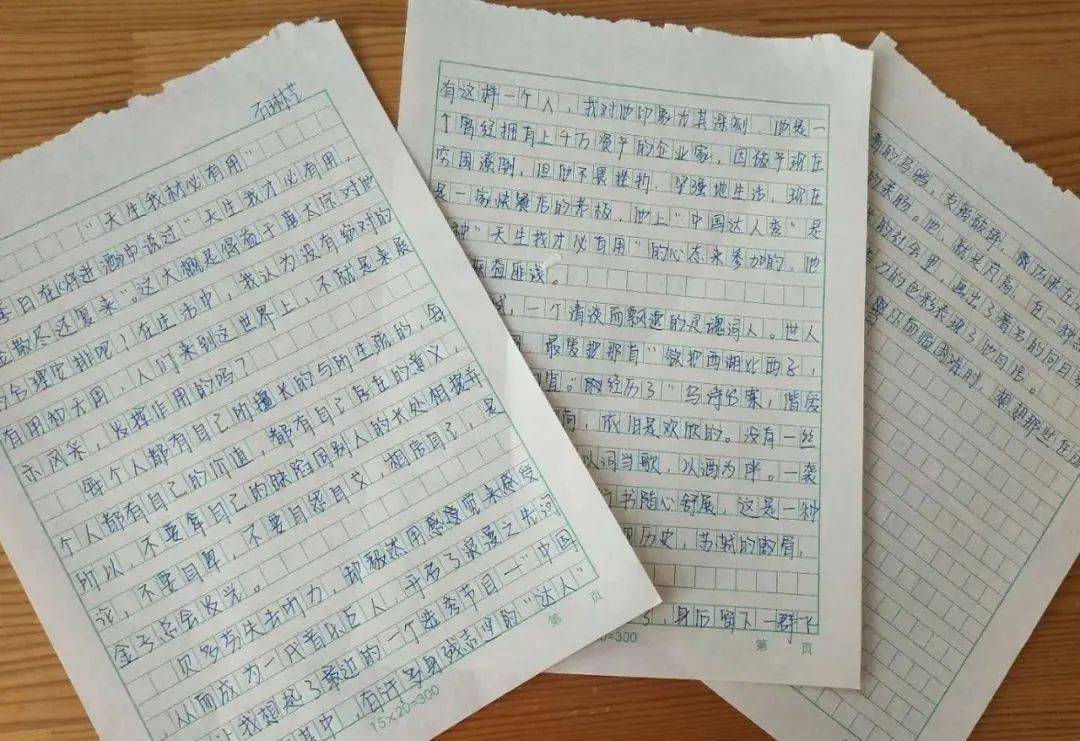 石琳芳
"天生我材必有用"
李白在《将进酒中说过"天生我才必有用,
金散尽还复来"。这大概是得益于唐太宗对他
的合理安排吧!在生活中,我认为没有绝对的
有用和无用,人们来到这世界上,不就是来展
示风采,发挥作用的吗?
每个人都有自己所擅长的与所生疏的,每
个人都有自己的价值,都有自己存在的意义,
所以,不要拿自己的缺陷同别人的长处相提并
论,不要自卑,不要自怨自艾,相信自己,是
金子总会发光。
贝多芬失去听力,却毅然用感觉来感受
从而成为一代音乐巨人,开启了浪漫之先河
让我想起了最近的一个选秀节目—"中国
其中,有许多身残志坚的"达人"
15×20=300
第 页
有这样一个人,我对他印象尤其深刻,他是一
个曾经拥有上千万资产的企业家,因破产现在
穷困潦倒,但他不畏挫折,坚强地生活,现在
是一家快餐店的老板,他上"中国达人秀"是
种"天生我才必有用"的心态来参加的,他
一个清淡而飘逸的灵魂词人。世人
最爱把那首"欲把西湖比西子,
宜。"经历了"乌诗台案,谐废
依旧是欢欣的。没有一丝
以词当歌,以酒为伴。一袭
书随心舒展,这是一种
历史,苏轼的傲骨,
身后留下一群下
20=300
第 页
的乌鸦,支离破碎
的束肠。他,就是
的社会里,画出了著名的向日葵
力的色彩表现了他
面临困难时,想想那些在困